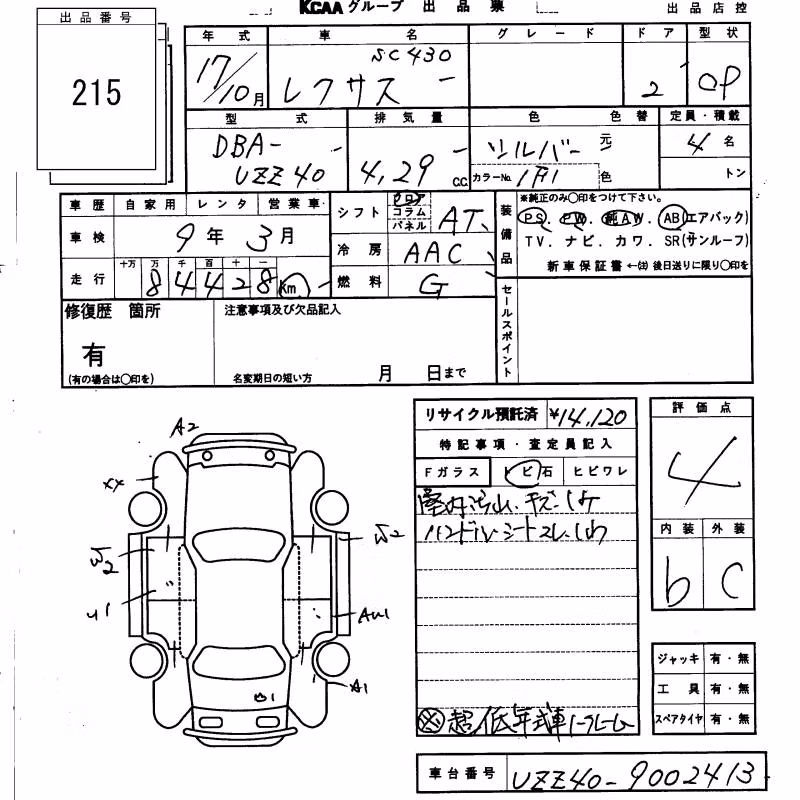 KCAA グループ 出品票
出品店控
出品番号
215
年式 車名 グレード ドア 型状
17/10月 レクサス SC430 2 OP
型式 排気量 色 色替 定員・積載
DBA-UZZ40 4,29 C.C. シルバー 元色 4名
カラーNo. 1F1 トン
車歴 自家用 レンタ 営業車
車検 9年 3月
走行 十万 万 千 百 十 一
84428 Km
シフト フロア コラム パネル AT
冷房 AAC
燃料 G
装備品
※純正のみ〇印をつけて下さい。
PS. PW. 純AW. AB(エアバック)
TV. ナビ. カワ. SR(サンルーフ)
新車保証書 ←(注) 後日送りに限り〇印を
修復歴 箇所
有
(有の場合は〇印を)
注意事項及び欠品記入
名変期日の短い方 月 日まで
セールスポイント
リサイクル預託済 ¥14,120
特記事項・査定員記入
Fガラス トビ石 ヒビワレ
ハンドル・シートスレ
※超低年式車ノークレーム
評価点
4
内装 外装
b C
ジャッキ 有・無
工具 有・無
スペアタイヤ 有・無
A2
XX
W2
W2
U1
AU1
A1
車台番号 UZZ40-9002413